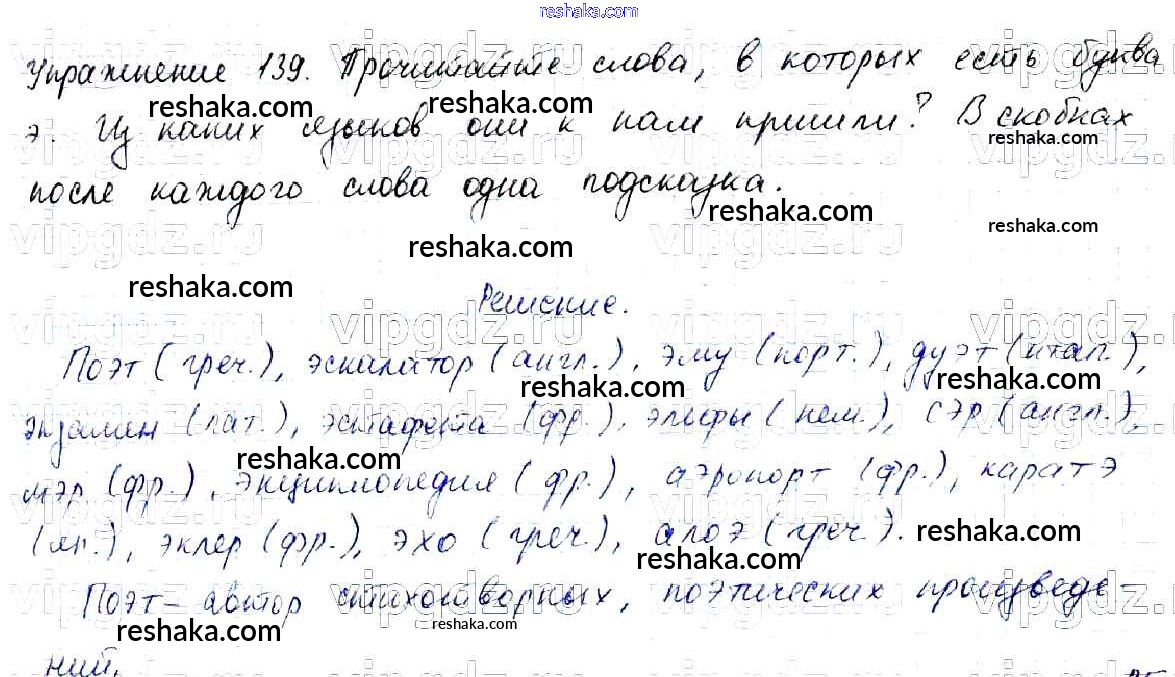 reshaka.com
Упражнение 139. Прочитайте слова, в которых есть буква
э. Из каких языков они к нам пришли? В скобках
reshaka.com reshaka.com reshaka.com
после каждого слова одна подсказка.
reshaka.com reshaka.com
vipgdz.ru vipgdz.ru vipgdz.ru
reshaka.com
reshaka.com
Решение.
vipgdz.ru vipgdz.ru vipgdz.ru
Поэт (греч.), эскалатор (англ.), эму (порт.), дуэт (итал.),
reshaka.com reshaka.com
экзамен (лат.), эстафета (фр.), эльфы (нем.), сэр (англ.),
reshaka.com
мэр (фр.), энциклопедия (фр.), аэропорт (фр.), каратэ
(яп.), эклер (фр.), эхо (греч.), алоэ (греч.).
reshaka.com reshaka.com
Поэт – автор стихотворных, поэтических произведе-
reshaka.com reshaka.com
ний.